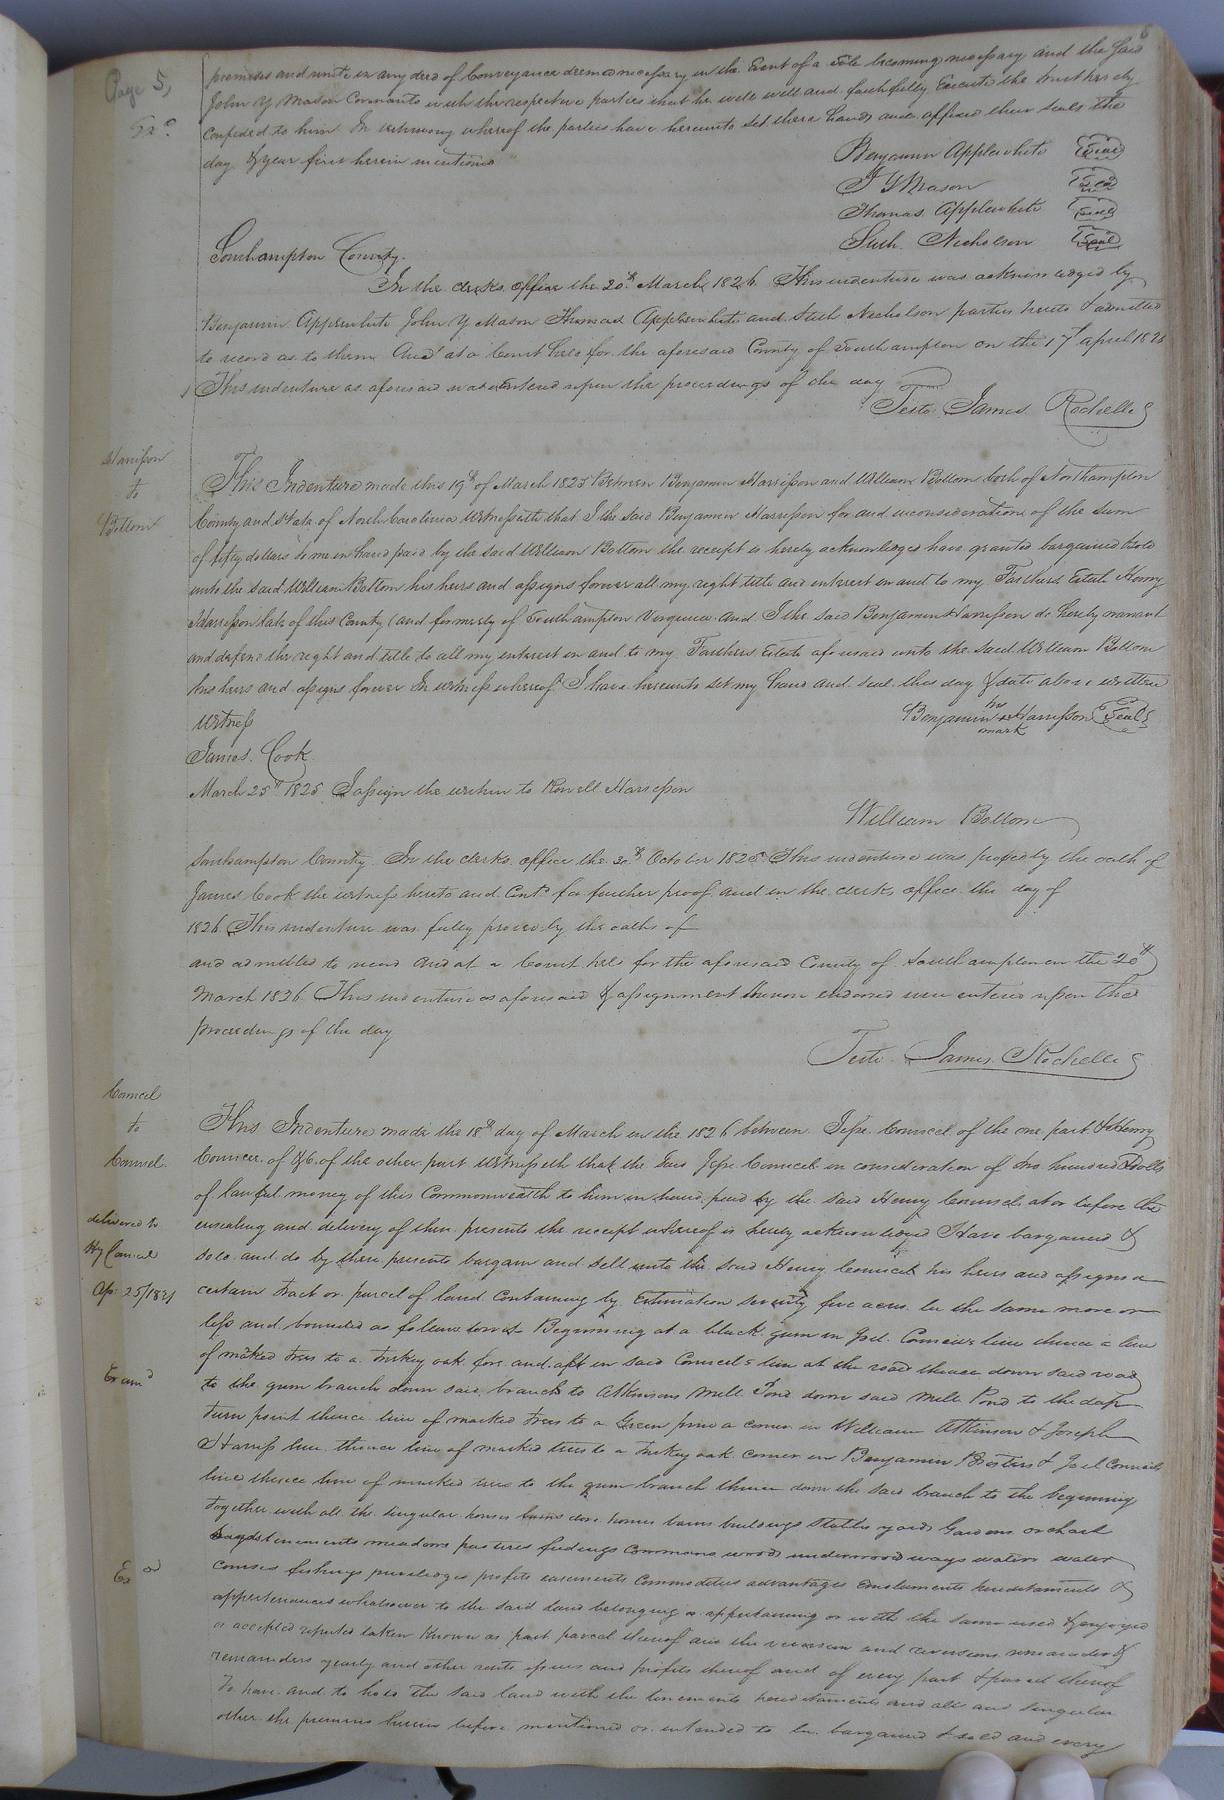 Page 5,
6
Exd
premises and unite in any deed of Conveyance deemed necessary in the Event of a Sale becoming necessary and the Said
John Y Mason Covenants with the respective parties that he will well and faithfully Execute the trust hereby
confided to him In testimony whereof the parties have hereunto Set there hands and affixed their seals the
day & year first herein mentioned
Benjamin Applewhite Seal
J Y Mason Seal
Thomas Applewhite Seal
Suth. Nicholson Seal
Southampton County.
In the clerks office the 20th March 1826. This indenture was acknowledged by
Benjamin Applewhite John Y Mason Thomas Applewhite and Suth Nicholson parties hereto & admitted
to record as to them And at a Court held for the aforesaid County of Southampton on the 17th april 1826
This indenture as aforesaid was Entered upon the proceedings of the day
Teste James Rochelle
Harrisson
to
Bottom
This Indenture made this 19th of March 1825 Between Benjamin Harrisson and William Bottom both of Northampton
County and State of North Carolina Witnesseth that I the said Benjamin Harrisson for and in consideration of the sum
of fifty dollars to me in hand paid by the said William Bottom the receipt is hereby acknowledged have granted bargained & sold
unto the said William Bottom his heirs and assigns forever all my right title and interest in and to my Farthers Estate Henry
Harrisson late of this County (and formerly of Southampton Virginia and I the said Benjamin Harrisson do hereby warrant
and defend the right and title to all my interest in and to my Farthers Estate aforesaid unto the said William Bottom
his heirs and assigns forever In witness whereof I have hereunto set my hand and seal this day & date above written
Witness
Benjamin his x mark Harrisson Seal
James Cook
March 25th 1825 I assign the within to Rowell Harrisson
William Bottom
Southampton County In the clerks office the 20th October 1825 This indenture was proved by the oath of
James Cook the witness hereto and Contd for further proof and in the clerks office the day of
1826 This indenture was fully proved by the oaths of
and admitted to record and at a Court held for the aforesaid County of Southampton on the 20th
March 1826 This indenture as aforesaid & assignment thereon endorsed were entered upon the
proceedings of the day
Teste James Rochelle
Councel
to
Councel.
This Indenture made the 18th day of March in the 1826 between Jesse Councel of the one part & Henry
Councel of &C. of the other part Witnesseth that the Said Jesse Councel in consideration of two hundred Dolls
of lawful money of this Commonwealth to him in hand paid by the said Henry Councel at or before the
delivered to
Hy Councel
Apr. 25/1831
ensealing and delivery of these presents the receipt whereof is hereby acknowledged Have bargained &
sold and do by these presents bargain and Sell unto the said Henry Councel his heirs and assigns a
certain tract or parcel of land Containing by Estimation seventy five acres be the same more or
less and bounded as follows towit Beginning at a black gum in Joel Councels line thence a line
of marked trees to a turkey oak fore and aft in said Councels line at the road thence down said road
Examd
to the gum branch down said branch to Atkinsons Mill Pond down said Mill Pond to the deep
turn point thence line of marked trees to a Green pine a corner in William Atkinson & Joseph
Harriss line thence line of marked trees to a turkey oak corner in Benjamin Bristers & Joel Councils
line thence line of marked trees to the gum branch thence down the said branch to the beginning
together with all the singular houses barns buildings stables yards Gardens orchard
tenements meadows pastures feedings Commons woods underwood ways waters water
Exd
courses fishings priviledges profits easements Commodities advantages emoluments hereditaments &
appertenances whatsoever to the said land belonging or appertaining or with the same used & enjoyed
or accepted reputed taken known as part parcel thereof and the reversion and reversions remainder &
remainders yearly and other rents issues and profits thereof and of every part & parcel thereof
To have and to hold the said land with the tenements hereditaments and all and singular
other the premises herein before mentioned or intended to be bargained & sold and every